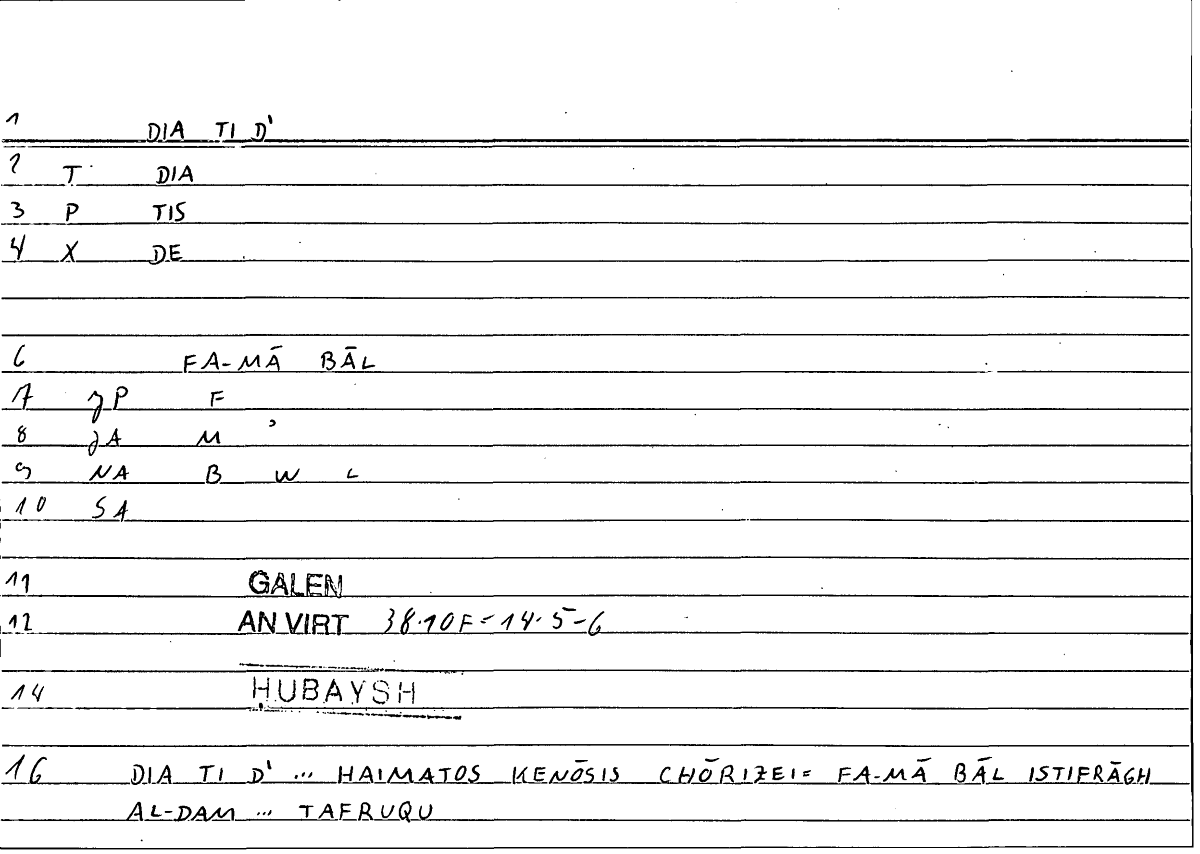 1 DIA TI D'
2 T DIA
3 P TIS
4 X DE
6 FA-MĀ BĀL
7 ȝP F
8 ȝA M ʾ
9 NA B W L
10 SA
11 GALEN
12 AN VIRT 38·10F = 14·5-6
14 ḤUBAYSH
16 DIA TI D' ... HAIMATOS KENŌSIS CHŌRIZEI = FA-MĀ BĀL ISTIFRĀGH
AL-DAM ... TAFRUQU